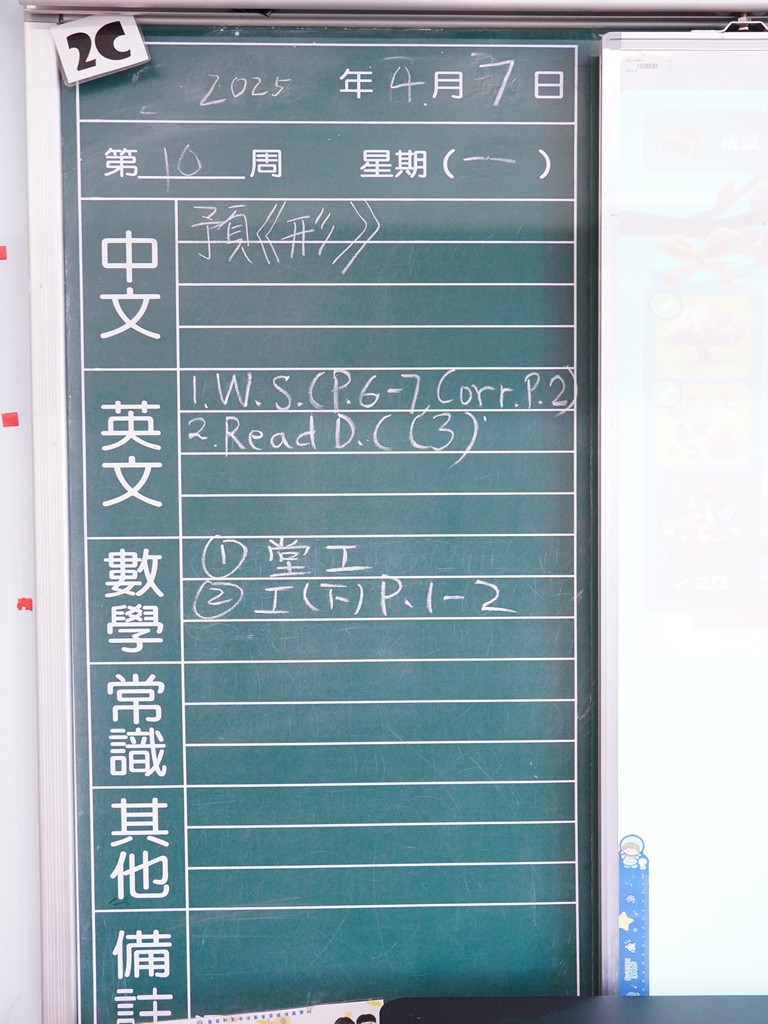 2C
2025 年 4 月 7 日
第 10 周 星期 ( 一 )
中文
預《形》
英文
1. W.S. (P.6-7, Corr. P.2)
2. Read D.C (3)
數學
① 堂工
② 工(下) P.1-2
常識
其他
備註
成就
2/3